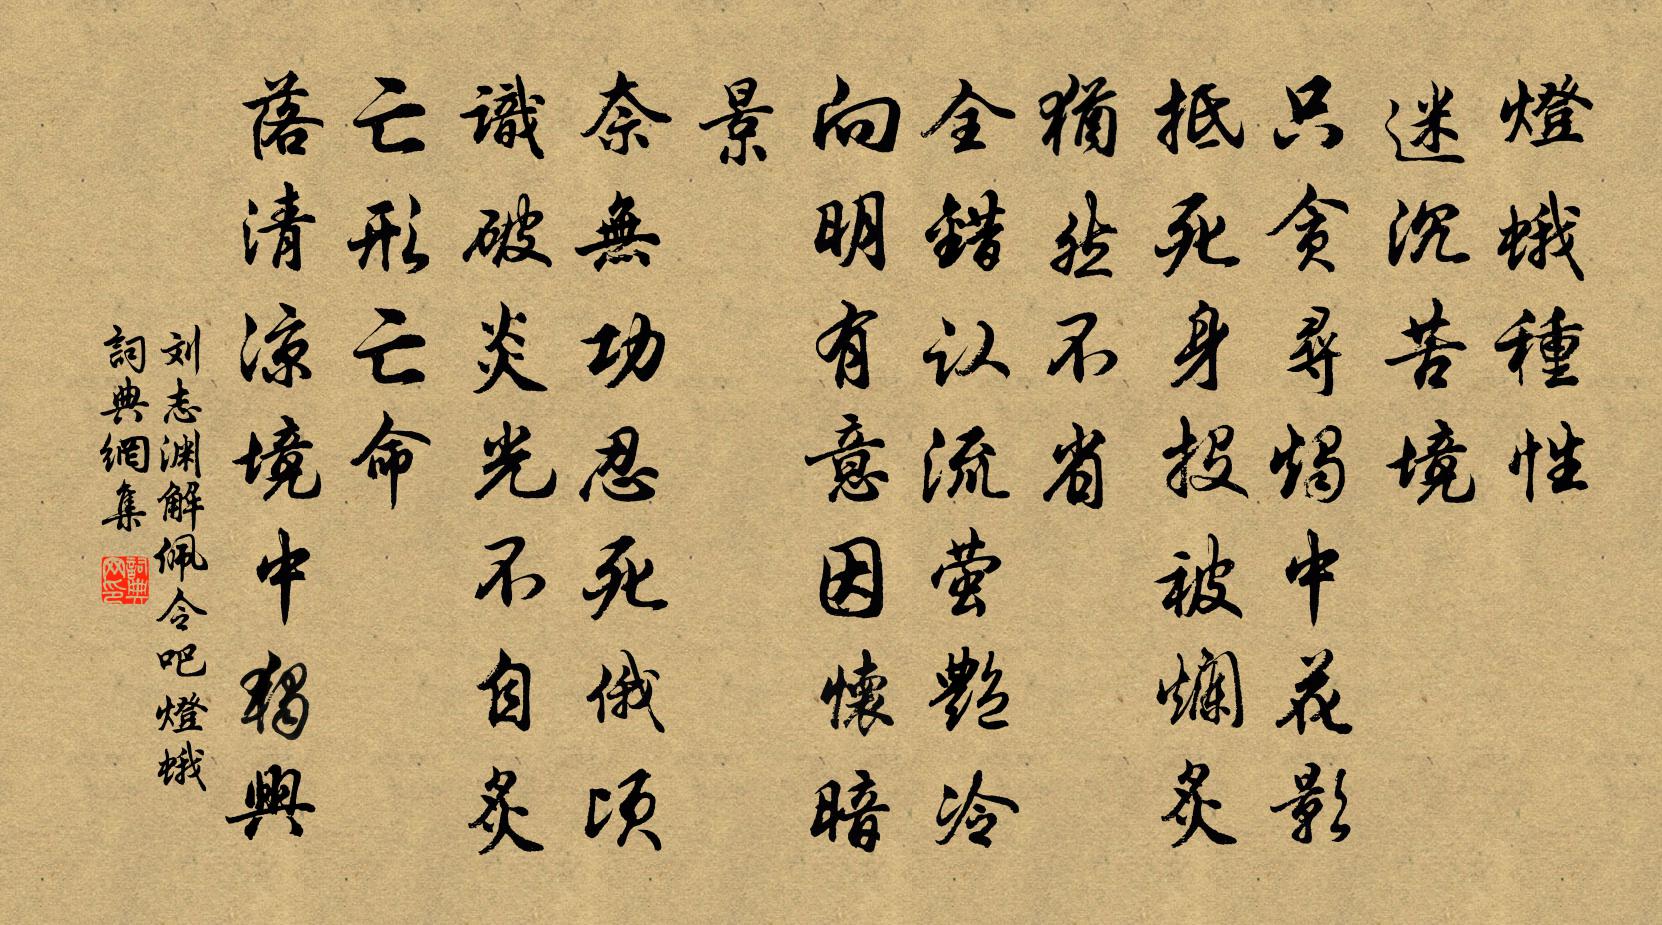 燈蛾種性
迷沉苦境
只贪尋燭中花影
抵死身投被爛炙
猶然不省
全錯认流萤艷冷
向明有意因懷暗
景
奈無功忍死俄顷
識破炎光不自炙
亡形亡命
落清凉境中獨興
刘志渊解佩令吧燈蛾
詞典網集
詞典网印